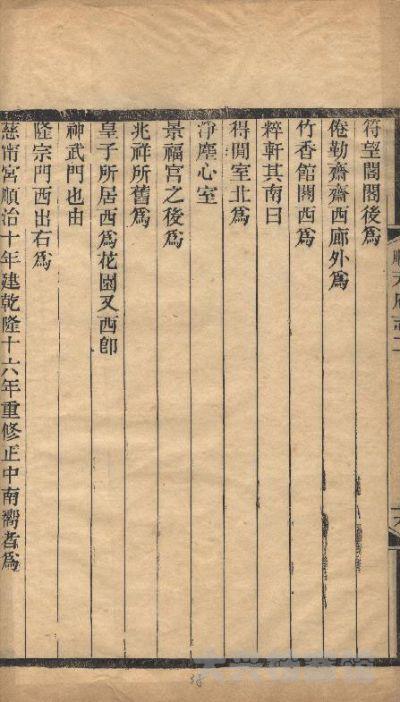 符望閣閣後爲
倦勤齋齋西廊外爲
竹香館閣西爲
粹軒其南曰
得閒室北爲
淨塵心室
景福宮之後爲
兆祥所舊爲
皇子所居西爲花園又西卽
神武門也由
隆宗門西出右爲
慈甯宮順治十年建乾隆十六年重修正中南嚮者爲
順天府志二